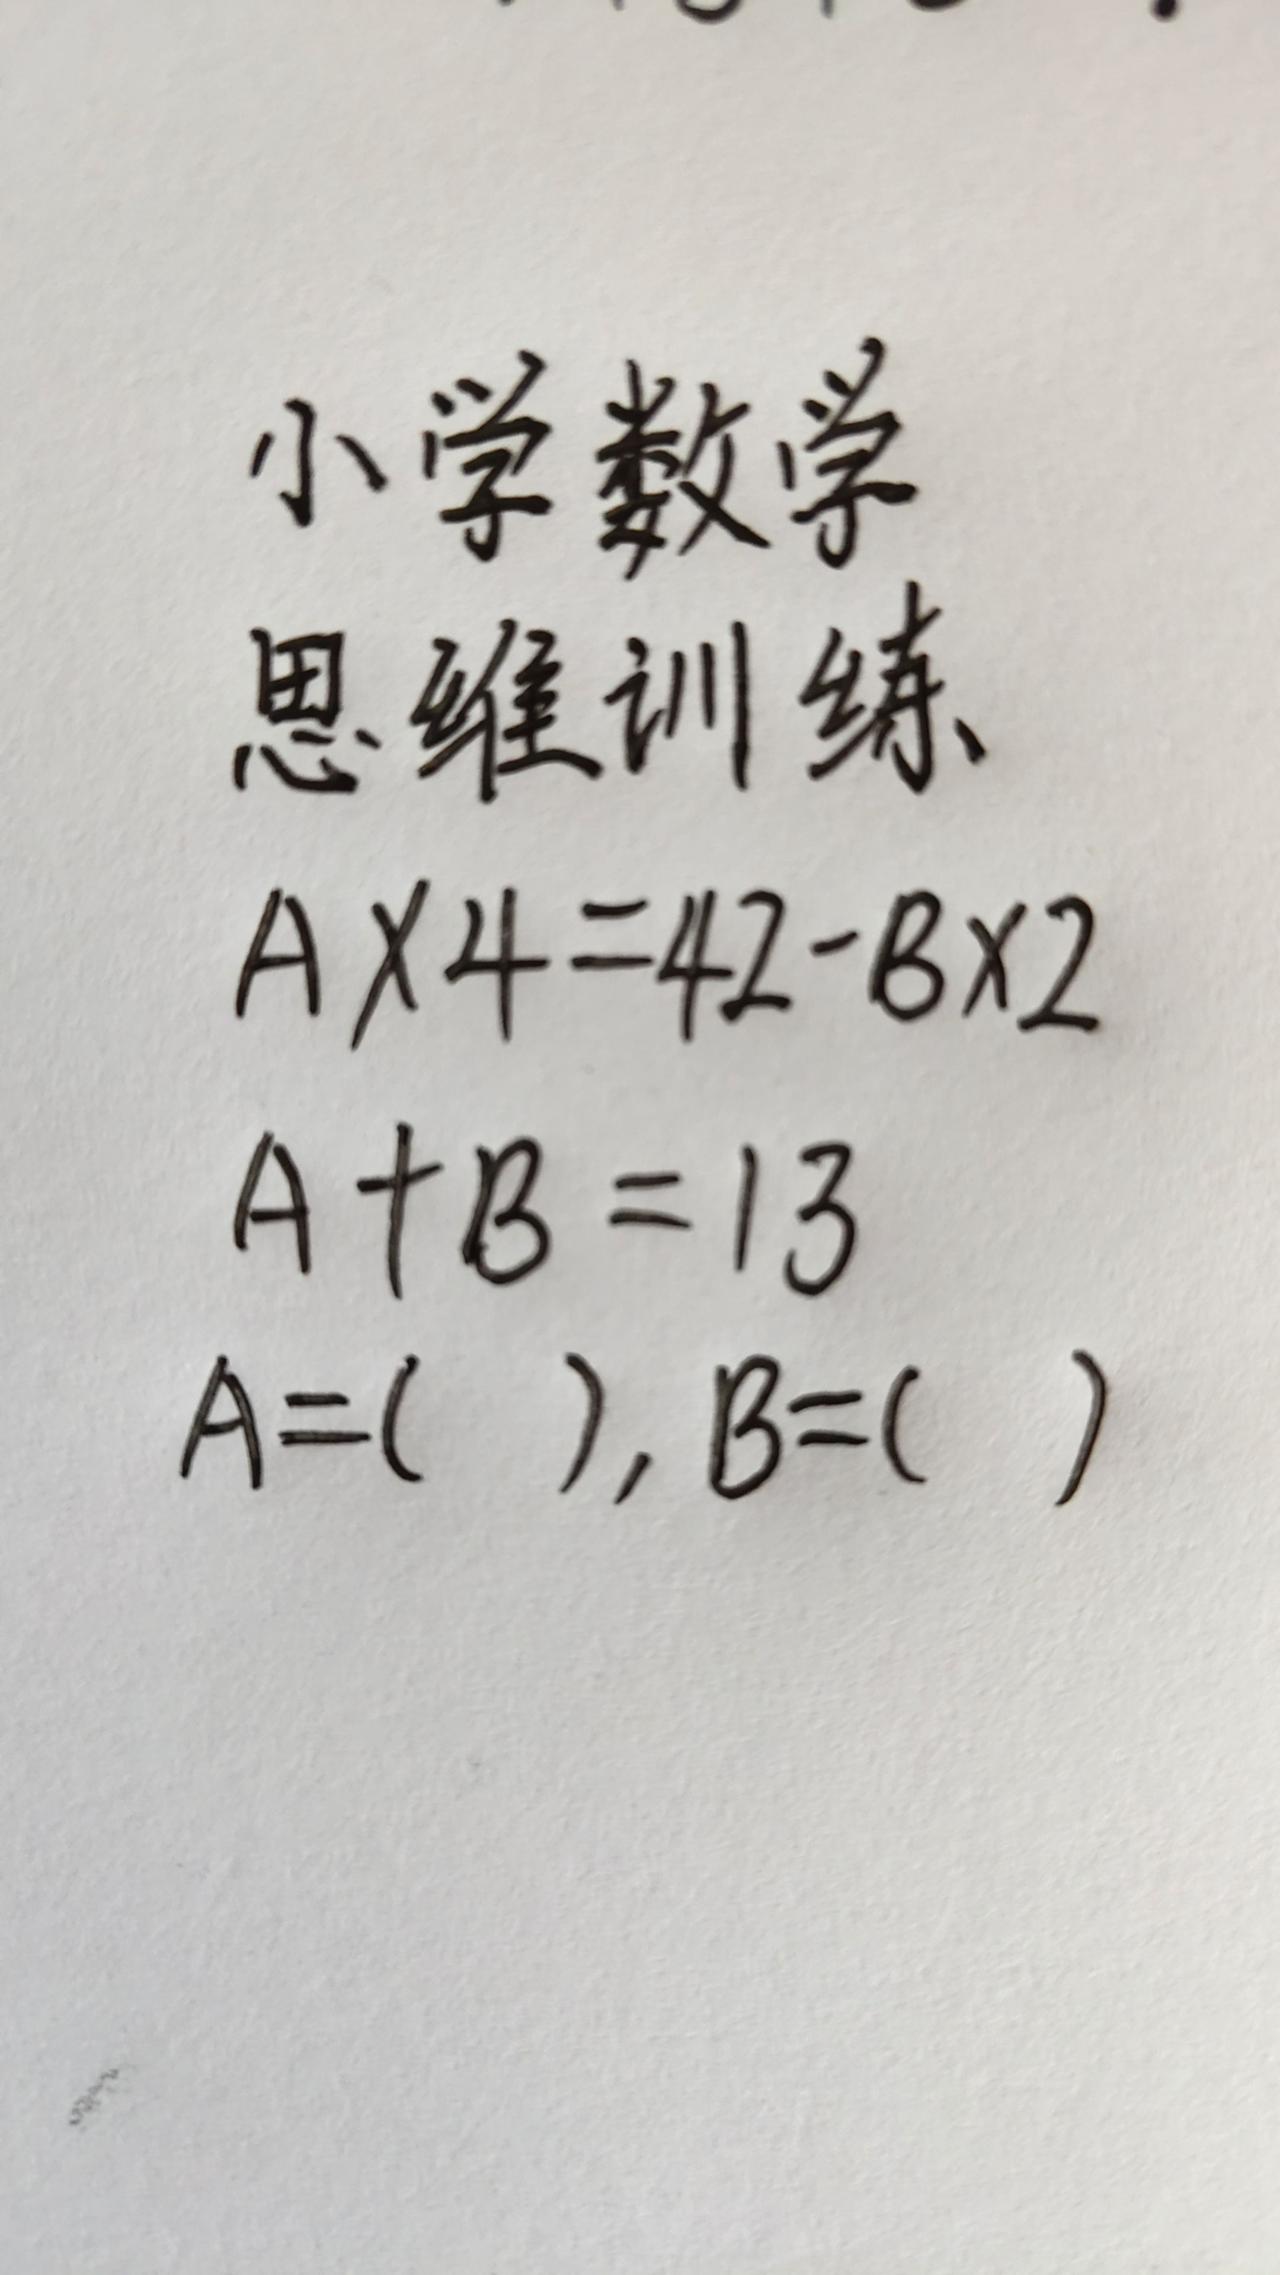 小学数学
思维训练
A×4=42-B×2
A+B=13
A=( ), B=( )